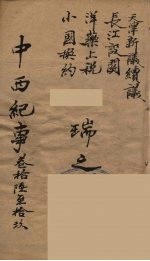 天津新議續議
長江設關
洋藥上税
小國換約
瑞之
中西紀事 卷拾陸至拾玖